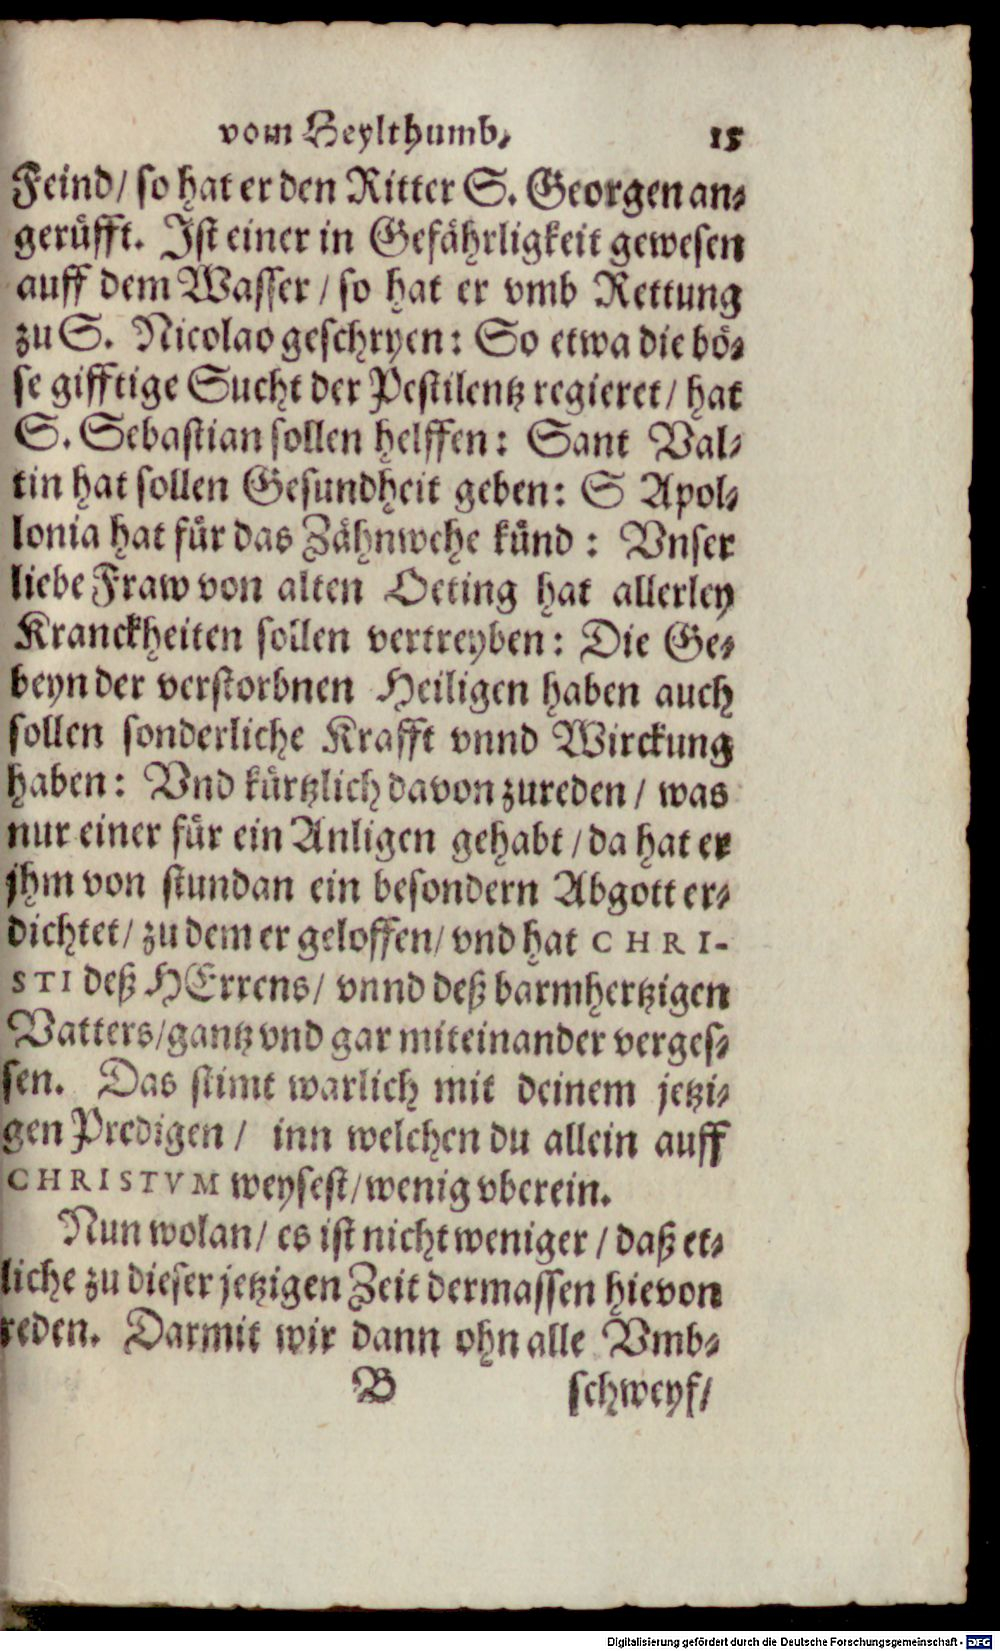 vom Heylthumb. 15
Feind/ so hat er den Ritter S. Georgen an-
gerüfft. Ist einer in Gefährligkeit gewesen
auff dem Wasser/ so hat er vmb Rettung
zu S. Nicolao geschryen: So etwa die bö-
se gifftige Sucht der Pestilentz regieret/ hat
S. Sebastian sollen helffen: Sant Val-
tin hat sollen Gesundheit geben: S Apol-
lonia hat für das Zähnwehe künd: Vnser
liebe Fraw von alten Oeting hat allerley
Kranckheiten sollen vertreyben: Die Ge-
beyn der verstorbnen Heiligen haben auch
sollen sonderliche Krafft vnnd Wirckung
haben: Vnd kürtzlich davon zureden/ was
nur einer für ein Anligen gehabt/ da hat er
jhm von stundan ein besondern Abgott er-
dichtet/ zu dem er geloffen/ vnd hat CHRI-
STI deß HErrens/ vnnd deß barmhertzigen
Vatters/ gantz vnd gar miteinander verges-
sen. Das stimt warlich mit deinem jetzi-
gen Predigen/ inn welchen du allein auff
CHRISTVM weysest/ wenig vberein.
Nun wolan/ es ist nicht weniger/ daß et-
liche zu dieser jetzigen Zeit dermassen hievon
reden. Darmit wir dann ohn alle Vmb-
B schweyf/
Digitalisierung gefördert durch die Deutsche Forschungsgemeinschaft - DFG